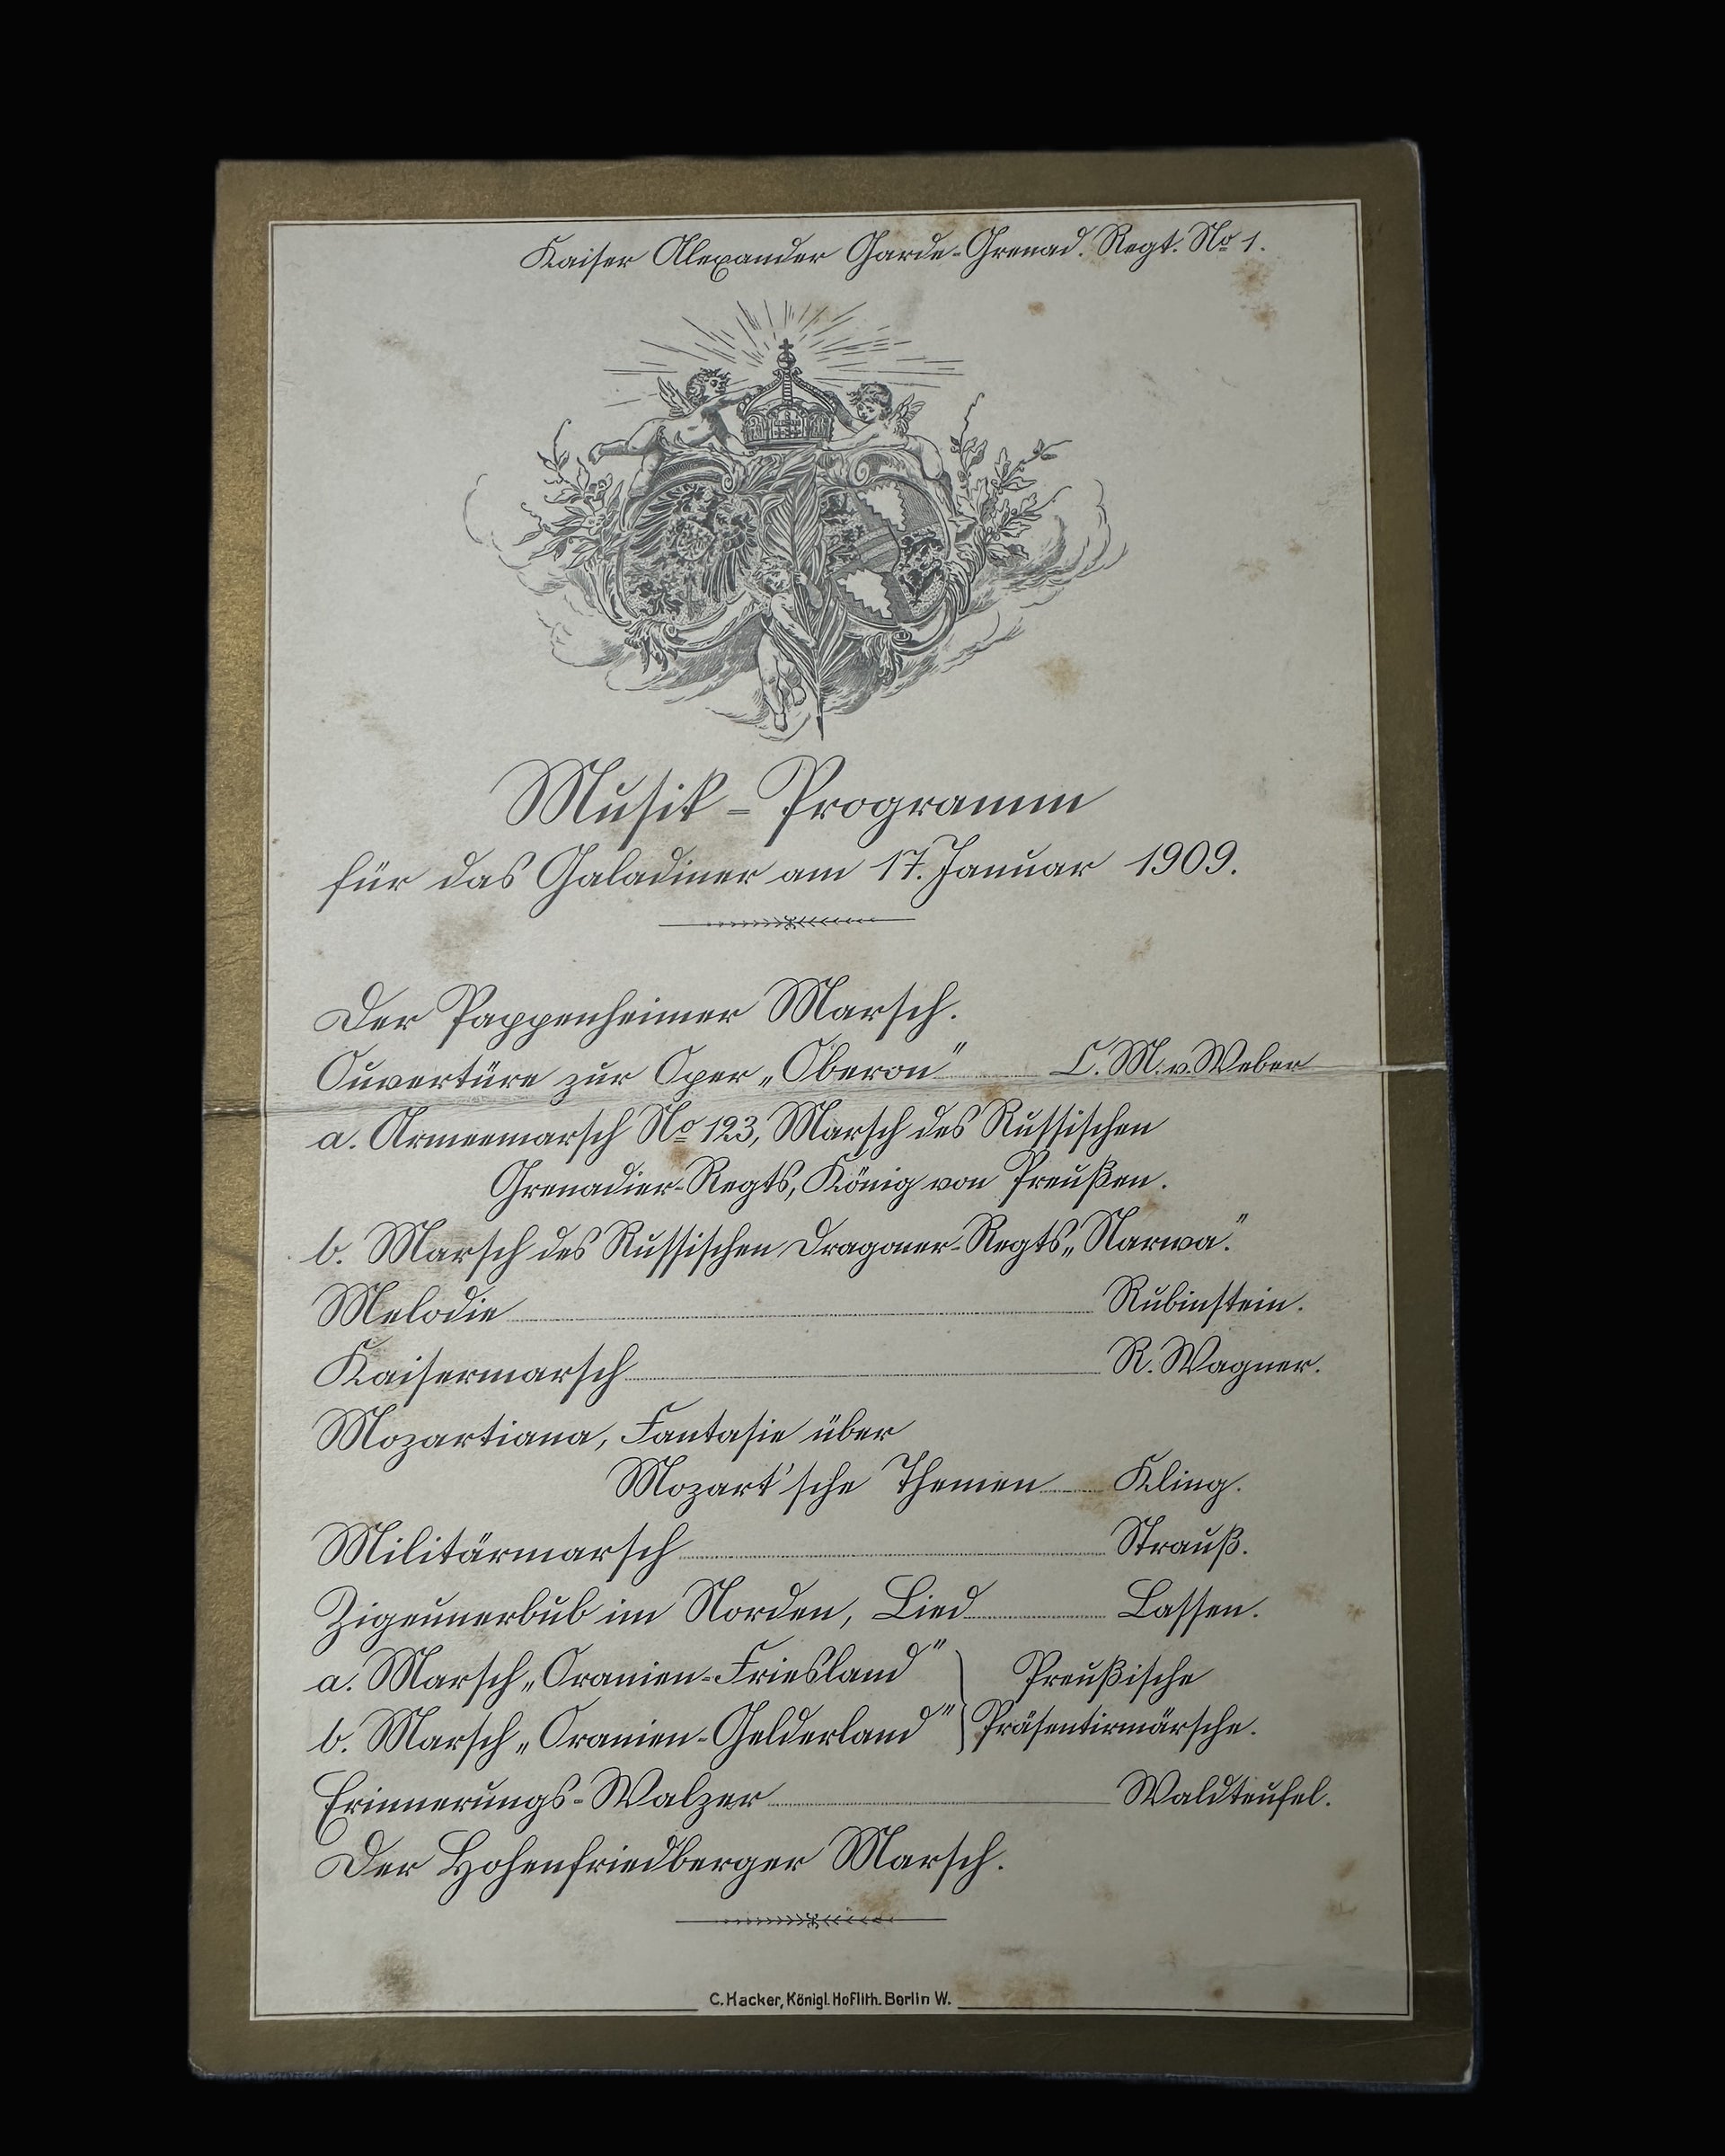 Kaiser Alexander Garde-Grenad. Regt. No 1.
Musik-Programm
für das Galadiner am 17. Januar 1909.
Der Pappenheimer Marsch.
Ouvertüre zur Oper „Oberon" C. M. v. Weber
a. Armeemarsch No 123, Marsch des Russischen
Grenadier-Regts, König von Preußen.
b. Marsch des Russischen Dragoner-Regts „Narwa."
Melodie Rubinstein.
Kaisermarsch R. Wagner.
Mozartiana, Fantasie über
Mozart'sche Themen Kling.
Militärmarsch Strauß.
Zigeunerbub im Norden, Lied Lassen.
a. Marsch „Oranien-Friesland" Preußische
b. Marsch „Oranien-Gelderland" Präsentirmärsche.
Erinnerungs-Walzer Waldteufel.
Der Hohenfriedberger Marsch.
C. Hacker, Königl. Hoflith. Berlin W.